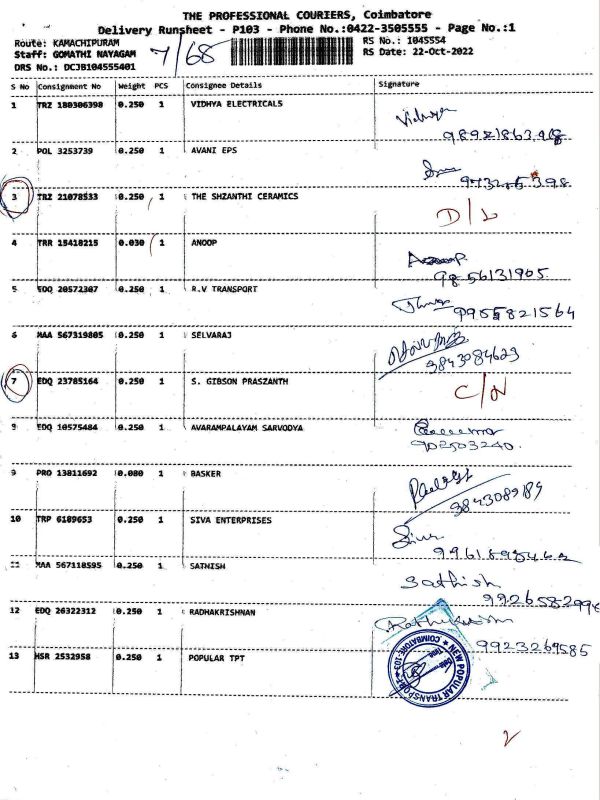 THE PROFESSIONAL COURIERS, Coimbatore
Delivery Runsheet - P103 - Phone No.:0422-3505555 - Page No.:1
Route: KAMACHIPURAM
Staff: GOMATHI NAYAGAM
DRS No.: DCJB104555401
7/68
RS No.: 1045554
RS Date: 22-Oct-2022
S No Consignment No Weight PCS Consignee Details Signature
1 TRZ 180306398 0.250 1 VIDHYA ELECTRICALS
2 POL 3253739 0.250 1 AVANI EPS
3 TRZ 21078533 0.250 1 THE SHZANTHI CERAMICS D/L
4 TRR 15418215 0.030 1 ANOOP
Anoop
9856131905
5 EDQ 20572307 0.250 1 R.V TRANSPORT
9955821564
6 MAA 567319805 0.250 1 SELVARAJ
3843084623
7 EDQ 23785164 0.250 1 S. GIBSON PRASZANTH C/N
9 EDQ 10575484 0.250 1 AVARAMPALAYAM SARVODYA
902503240
9 PRO 13811692 0.080 1 BASKER
3843089189
10 TRP 6109653 0.250 1 SIVA ENTERPRISES
11 MAA 567118595 0.250 1 SATHISH
Sathish
9926582998
12 EDQ 26322312 0.250 1 RADHAKRISHNAN
9923269585
13 HSR 2532958 0.250 1 POPULAR TPT
NEW POPULAR TRANSPORT
COIMBATORE-103
2